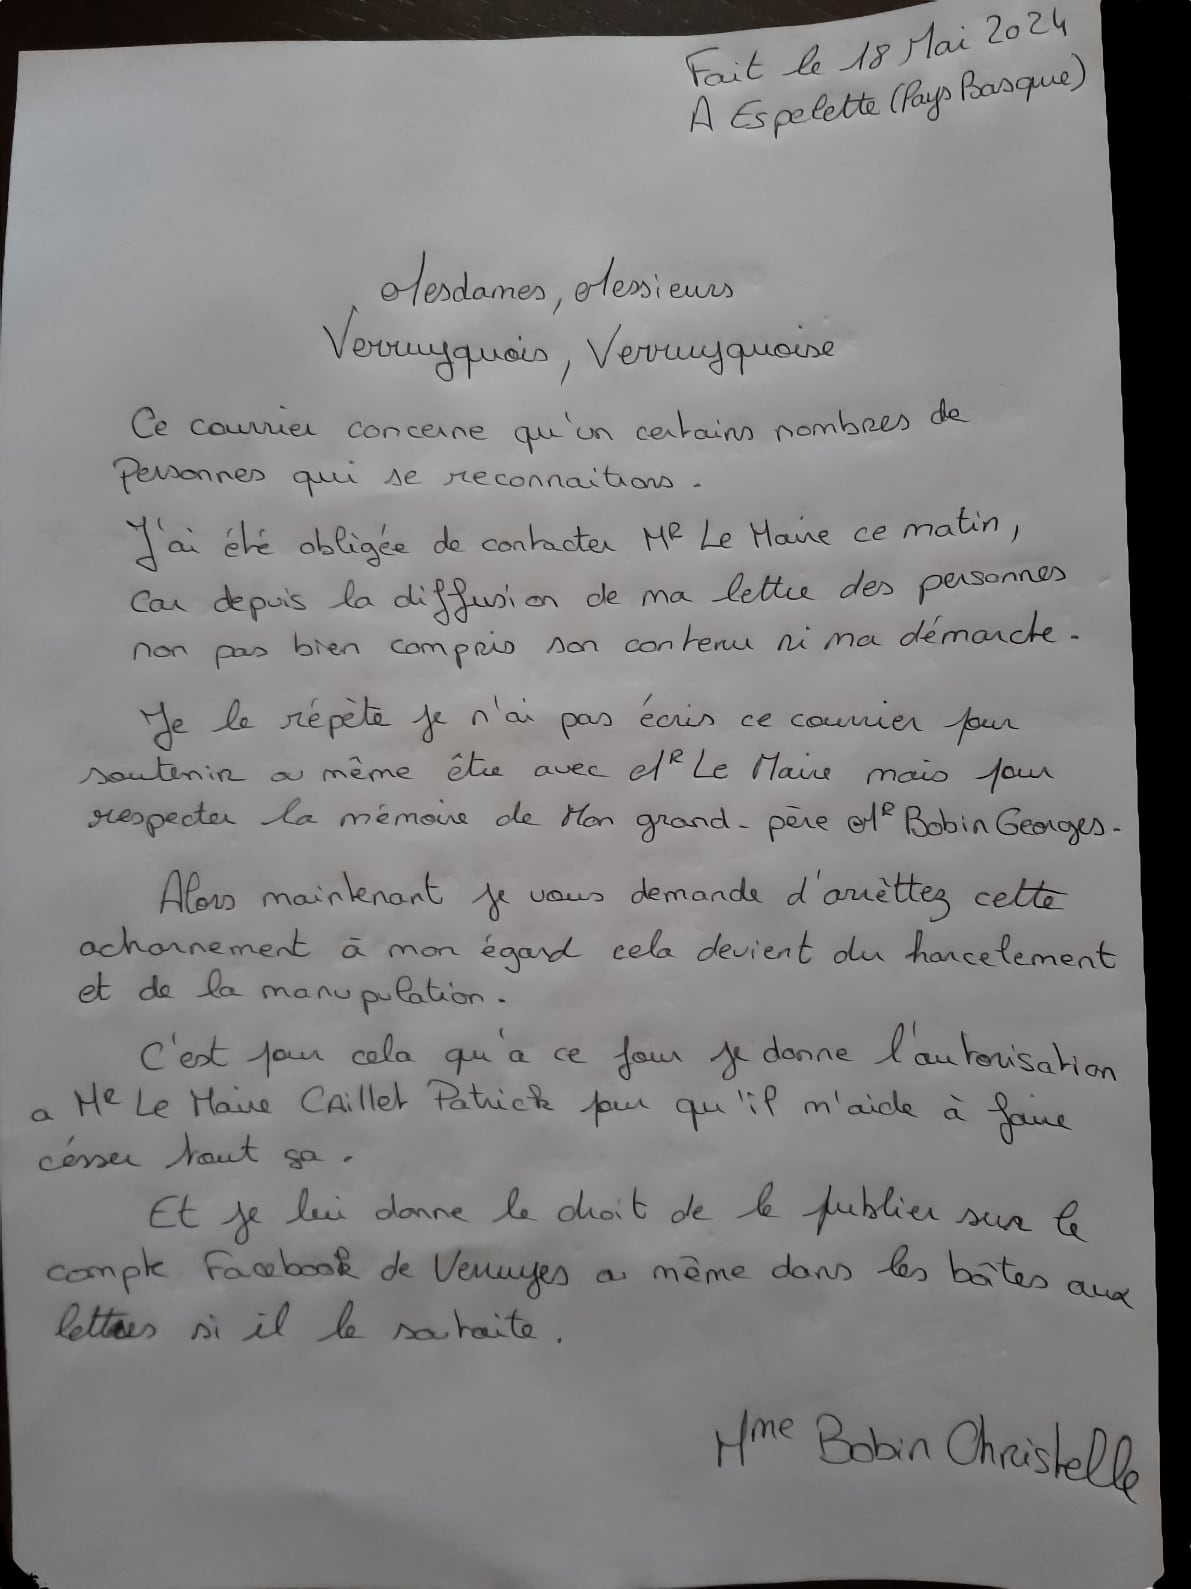 Fait le 18 Mai 2024
A Espelette (Pays Basque)
Mesdames, Messieurs
Verruyquois, Verruyquoise
Ce courrier concerne qu'un certains nombres de
Personnes qui se reconnaitrons.
J'ai été obligée de contacter MR Le Maire ce matin,
Car depuis la diffusion de ma lettre des personnes
non pas bien compris son contenu ni ma démarche.
Je le répète je n'ai pas écris ce courrier pour
soutenir ou même être avec MR Le Maire mais pour
respecter la mémoire de Mon grand-père MR Bobin Georges.
Alors maintenant je vous demande d'arrèttez cette
acharnement à mon égard cela devient du harcelement
et de la manupulation.
C'est pour cela qu'a ce jour je donne l'autorisation
a MR Le Maire CAillet Patrick pour qu'il m'aide à faire
césser tout sa.
Et je lui donne le droit de le publier sur le
compte Facebook de Verruyes ou même dans les boîtes aux
lettres si il le souhaite.
Mme Bobin Christelle